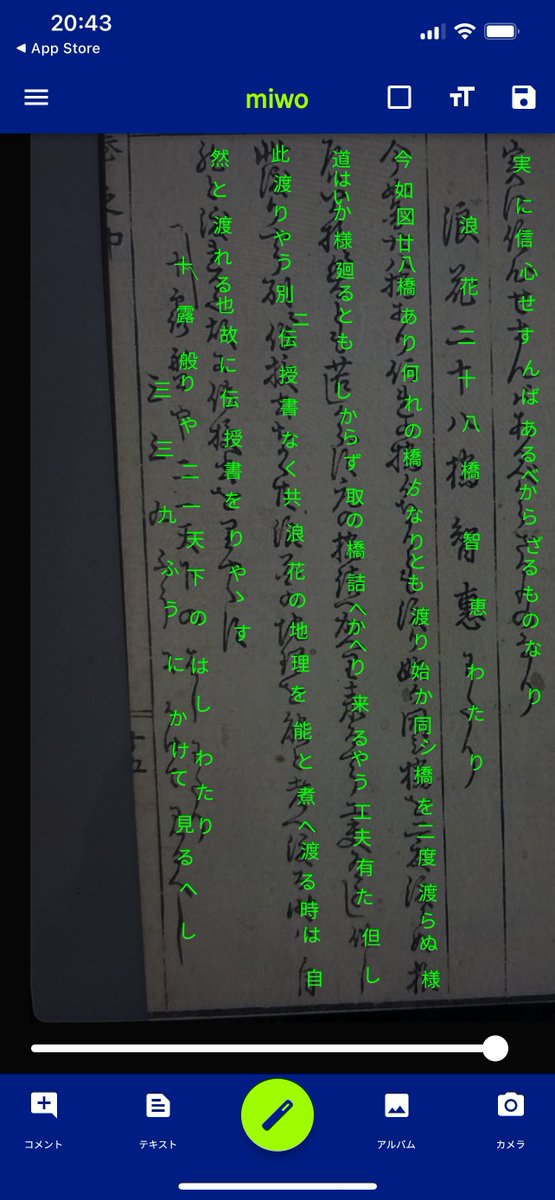 20:43
App Store
miwo
実に信心せすんばあるべからざるものなり
浪花二十八橋智恵わたり
今如図廿八橋あり何れの橋ゟなりとも渡り始か同シ橋を二度渡らぬ様
道はいか様廻るとも しからず取の橋詰へかへり来るやう工夫有た但し
此渡りやう別ニ伝授書なく共浪花の地理を能と煮へ渡る時は自
然と渡れる也故に伝授書をりやゝす
十露般りや二一天下のはしわたり
三三九ふうにかけて見るへし
コメント
テキスト
アルバム
カメラ